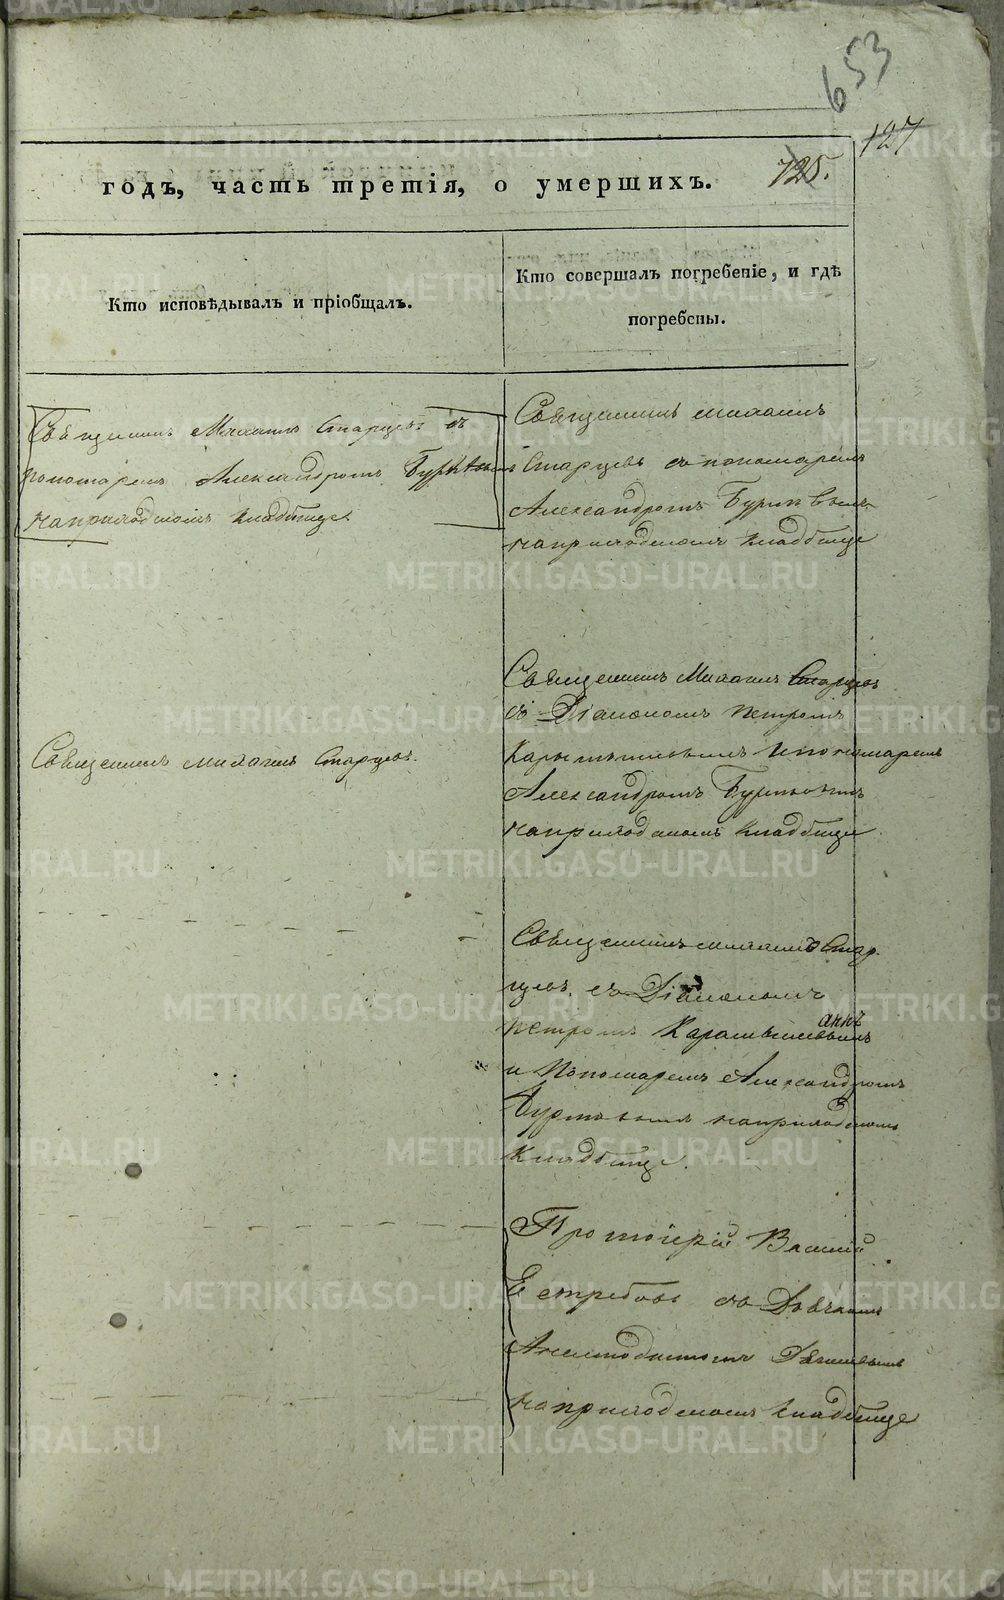 653
127
годъ, часть третія, о умершихъ.
125.
Кто исповѣдывалъ и пріобщалъ.
Кто совершалъ погребеніе, и гдѣ
погребены.
Священникъ Михаилъ Старцовъ съ
пономаремъ Александромъ
на приходскомъ кладбище
Священникъ Михаилъ
Старцовъ съ пономаремъ
Александромъ
на приходскомъ кладбище
Священникъ Михаилъ Старцовъ.
Священникъ Михаилъ Старцовъ
съ Діакономъ Петромъ
и пономаремъ
Александромъ
на приходскомъ кладбище
Священникъ Михаилъ Стар
цовъ съ Діакономъ
Петромъ
и Пономаремъ Александромъ
на приходскомъ
Кладбище.
Протоіерій Василій
Естребовъ съ Дьячкомъ
на приходскомъ кладбище
METRIKI.GASO-URAL.RU